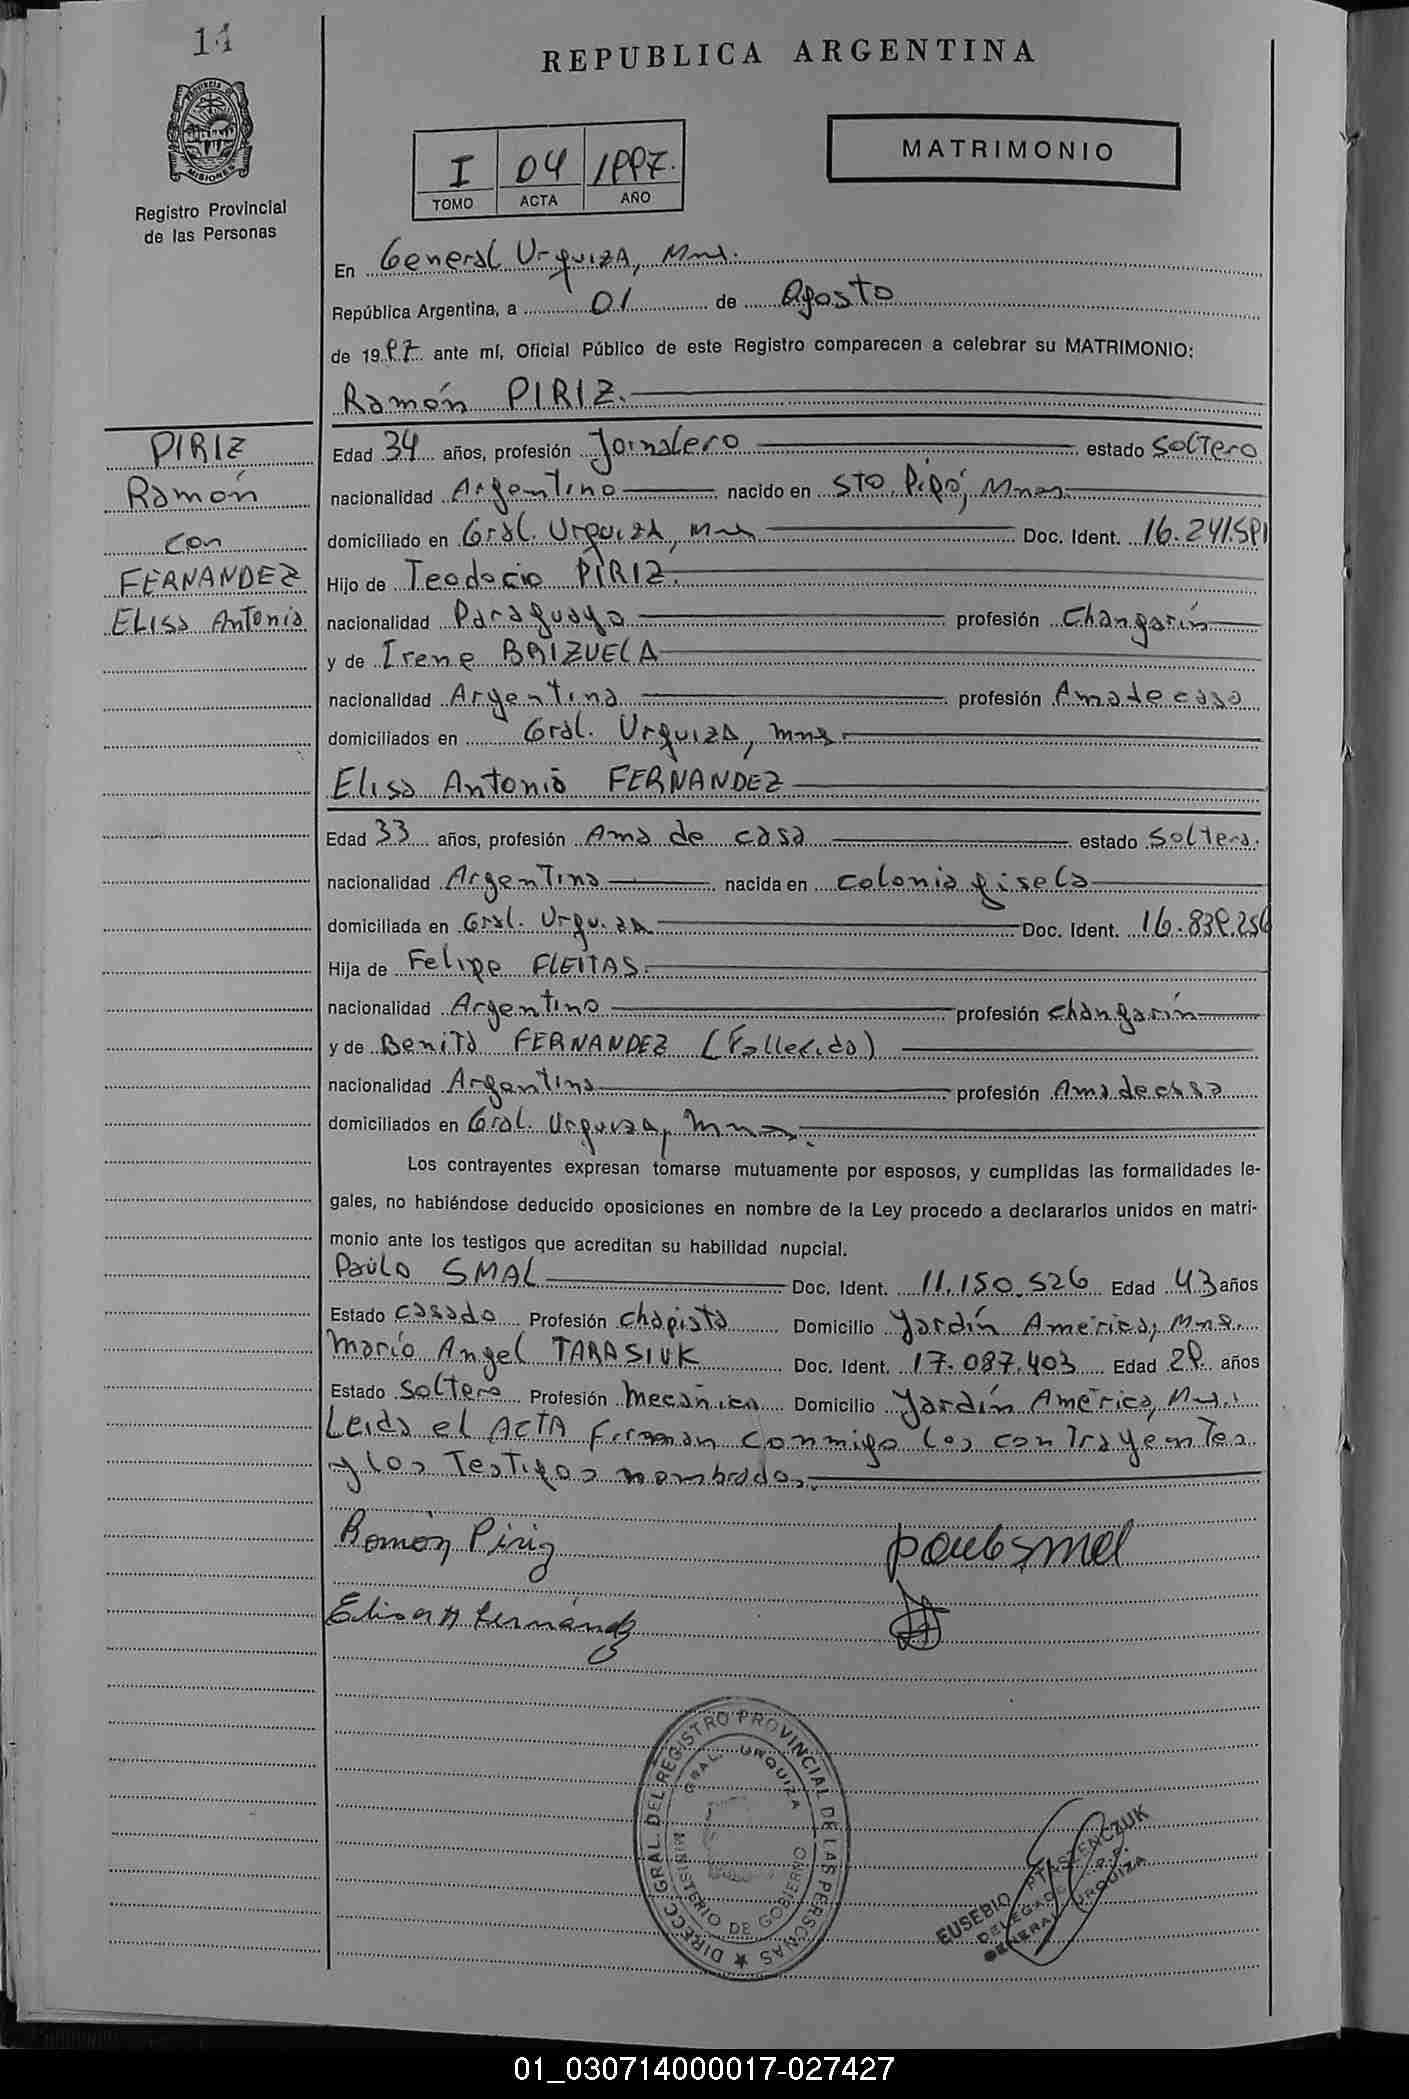 14
REPUBLICA ARGENTINA
PROVINCIA DE
MISIONES
Registro Provincial
de las Personas
I 04 1997.
TOMO ACTA AÑO
MATRIMONIO
En General Urquiza, Mns.
República Argentina, a 01 de Agosto
de 1997 ante mí, Oficial Público de este Registro comparecen a celebrar su MATRIMONIO:
Ramón PIRIZ.
PIRIZ
Ramón
con
FERNANDEZ
Elisa Antonia
Edad 34 años, profesión Jornalero estado Soltero
nacionalidad Argentino nacido en STO. Pipó, Mnes.
domiciliado en Gral. Urquiza, Mns Doc. Ident. 16.241.591
Hijo de Teodocio PIRIZ.
nacionalidad Paraguayo profesión Changarín
y de Irene BRIZUELA
nacionalidad Argentina profesión Ama de casa
domiciliados en Gral. Urquiza, Mns.
Elisa Antonia FERNANDEZ
Edad 33 años, profesión Ama de casa estado Soltera.
nacionalidad Argentina nacida en colonia gisela
domiciliada en Gral. Urquiza Doc. Ident. 16.839.256
Hija de Felipe FLEITAS.
nacionalidad Argentino profesión changarín
y de Benita FERNANDEZ (Fallecida)
nacionalidad Argentina profesión Ama de casa
domiciliados en Gral. Urquiza, Mnes.
Los contrayentes expresan tomarse mutuamente por esposos, y cumplidas las formalidades le-
gales, no habiéndose deducido oposiciones en nombre de la Ley procedo a declararlos unidos en matri-
monio ante los testigos que acreditan su habilidad nupcial.
Paulo SMAL Doc. Ident. 11.150.526 Edad 43 años
Estado casado Profesión chapista Domicilio Jardín América, Mns.
Mario Angel TARASIUK Doc. Ident. 17.087.403 Edad 29 años
Estado Soltero Profesión Mecánico Domicilio Jardín América, Mns.
Leida el ACTA Firman conmigo los contrayentes
y los Testigos nombrados.
Ramón Piriz
Paulo Smal
Elisa A Fernández
DIRECC. GRAL. DEL REGISTRO PROVINCIAL DE LAS PERSONAS
GRAL. URQUIZA
MINISTERIO DE GOBIERNO
EUSEBIO PTASZENCZUK
DELEGADO R.P.P.
GENERAL URQUIZA
01_030714000017-027427